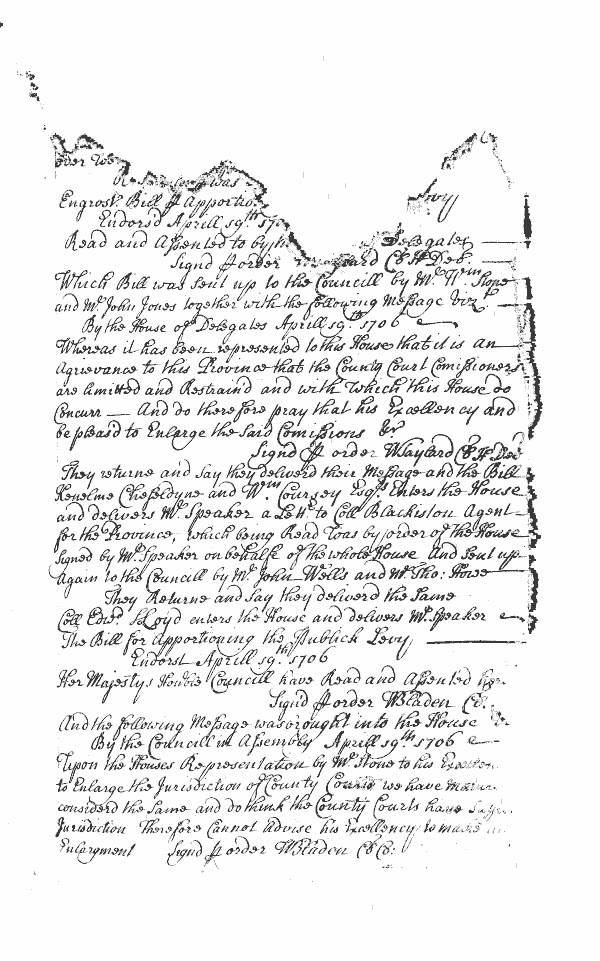 over
was
Engross'd Bill ℔ Apportio Levy
Endorsd Aprill 19th 170
Read and Assented to by h Delegates
Signd ℔ order ard Cl H Del.
Which Bill was sent up to the Councill by Mr Wm Stone
and Mr John Jones together with the following Message vizt
By the House of Delegates Aprill 19th 1706
Whereas it has been represented to this House that it is an
Agrievance to this Province that the County Court Comissioners
are limitted and Restraind and with Which this House do
Concurr — And do therefore pray that his Excellency and
be pleasd to Enlarge the said Comissions &c
Signd ℔ order W Taylard Cl H Del
They returne and say they deliverd their Message and the Bill
Kenelme Cheseldyne and Wm Coursey Esqrs Enters the House
and delivers Mr Speaker a Lettr to Coll Blackiston Agent
for the Province, which being Read was by order of the House
Signed by Mr Speaker on behalfe of the whole House and Sent up
Again to the Councill by Mr John Wells and Mr Tho: Howe
They Returne and say they deliverd the Same
Coll Edwd Lloyd enters the House and delivers Mr Speaker
The Bill for Apportioning the Publick Levy
Endorst Aprill 19th 1706
Her Majestys Honble Councill have Read and Assented
Signd ℔ order W Bladen Cl.
And the following Message was brought into the House
By the Councill in Assembly Aprill 19th 1706
Upon the Houses Representation by Mr Stone to his Excellen
to Enlarge the Jurisdiction of County Courts we have
considerd the Same and do think the County Courts have
Jurisdiction Therefore Cannot advise his Excellency to make
Enlargment Signd ℔ order W Bladen Cl Co: